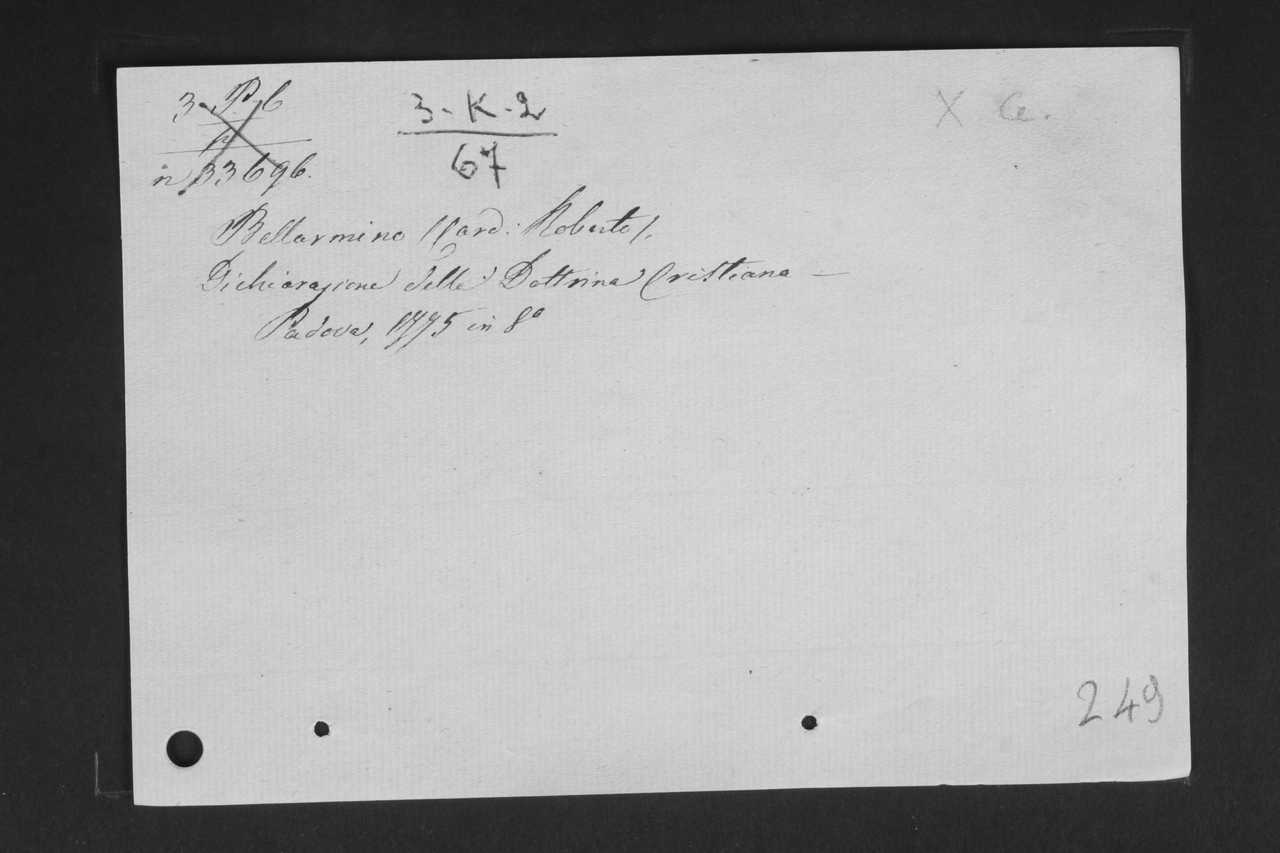 3-P-6
n 33696.
3-K-2
67
X Ce.
Bellarmino (Card: Roberto).
Dichiarazione della Dottrina Cristiana —
Padova, 1775 in 8º
249